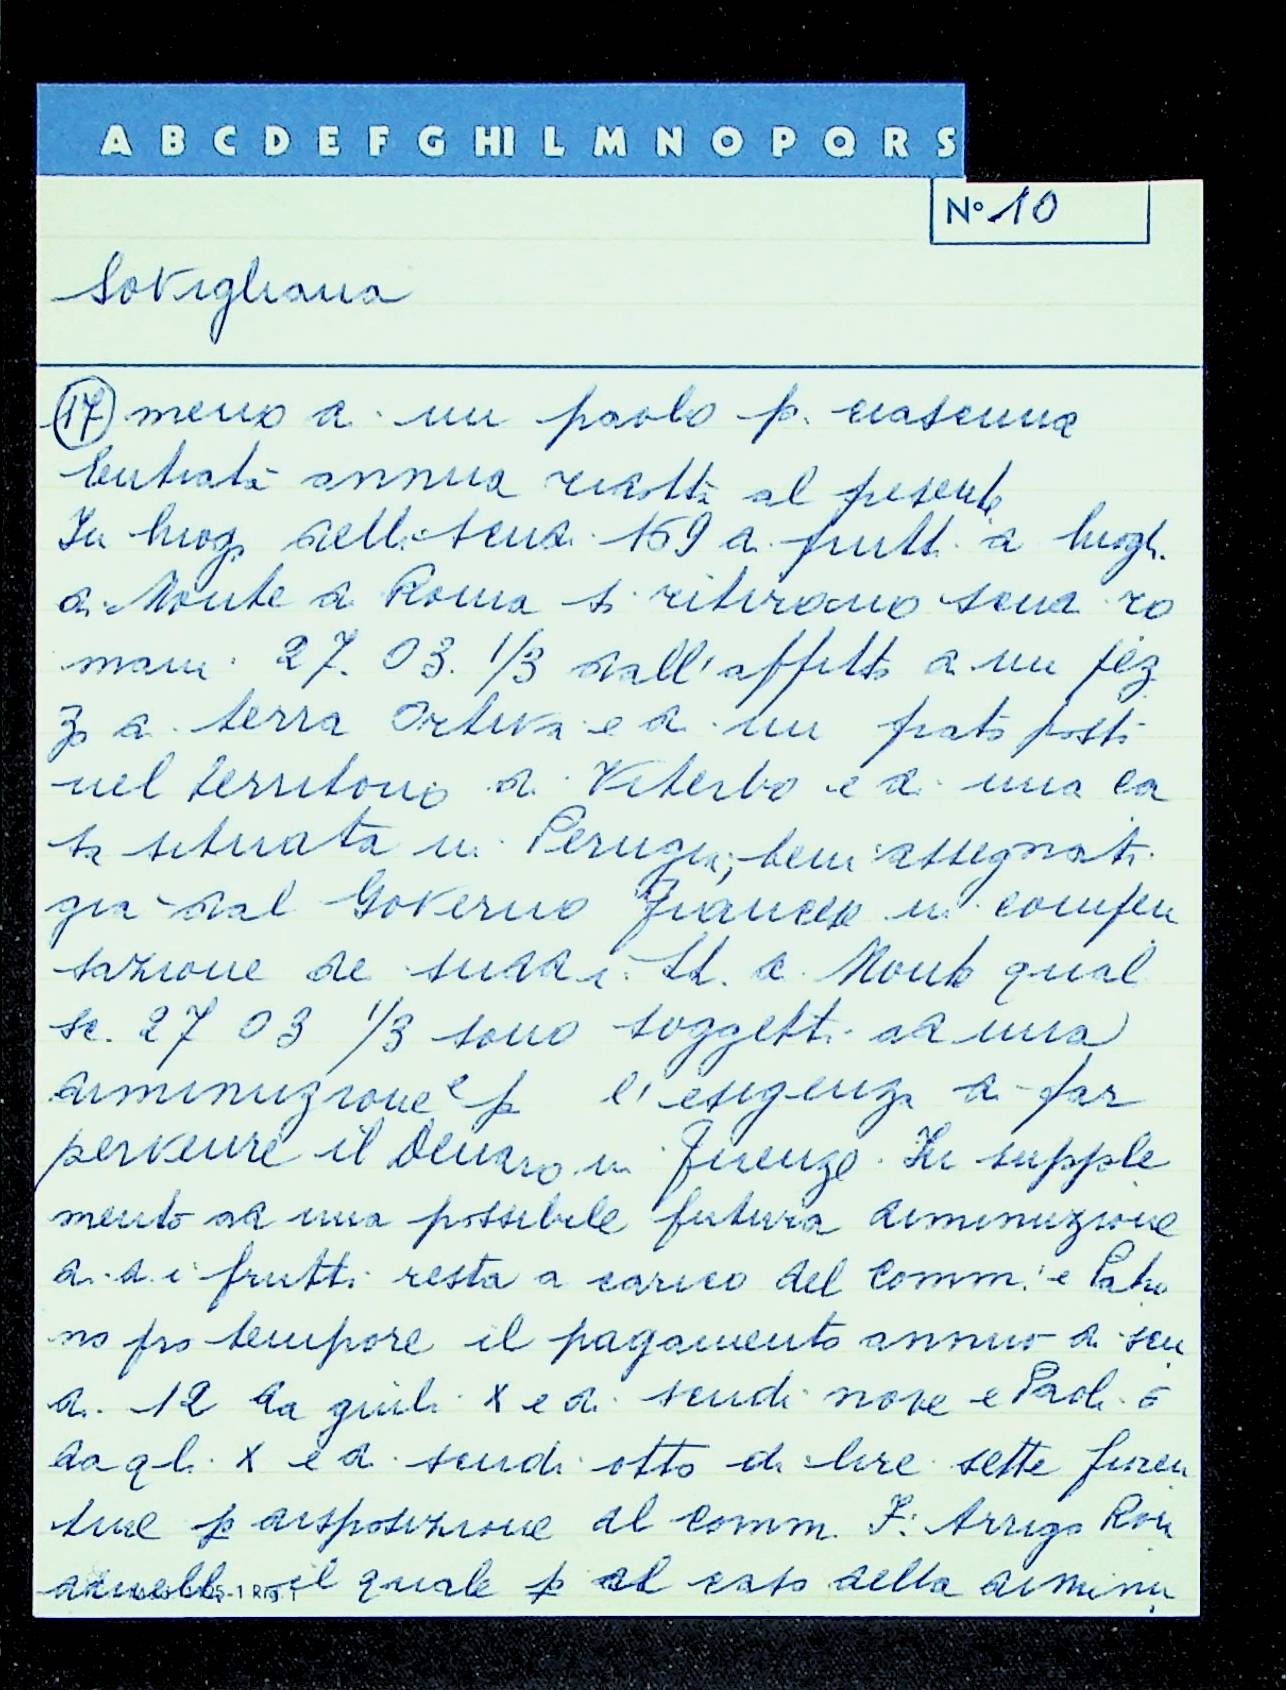 A B C D E F G HI L M N O P Q R S
N° 10
Sovigliana
(17) meno di un paolo p. ciascuna
Entrata annua ridotta al presente
In luogo delli scudi 159 di frutti di luoghi
di Monte di Roma si ritirano scudi ro
mani 27. 03. 1/3 dall'affitto di un pez
zo di terra Ortiva e di un prato posti
nel territorio di Viterbo e di una ca
sa situata in Perugia; beni assegnati
già dal Governo Francese in compen
sazione de sudd.i LL. di Monte quali
sc. 27 03 1/3 sono soggetti ad una
diminuzione p l'esigenza di far
pervenire il Denaro in Firenze. In supple
mento ad una possibile futura diminuzione
di d.i frutti resta a carico del Comm. e Patro
no pro tempore il pagamento annuo di scu
di 12 da giuli X e di scudi nove e Paoli 6
da gli X e di scudi otto di lire sette fioren
tine p disposizione del Comm. F. Arrigo Ron
dinelli il quale p il caso della diminu